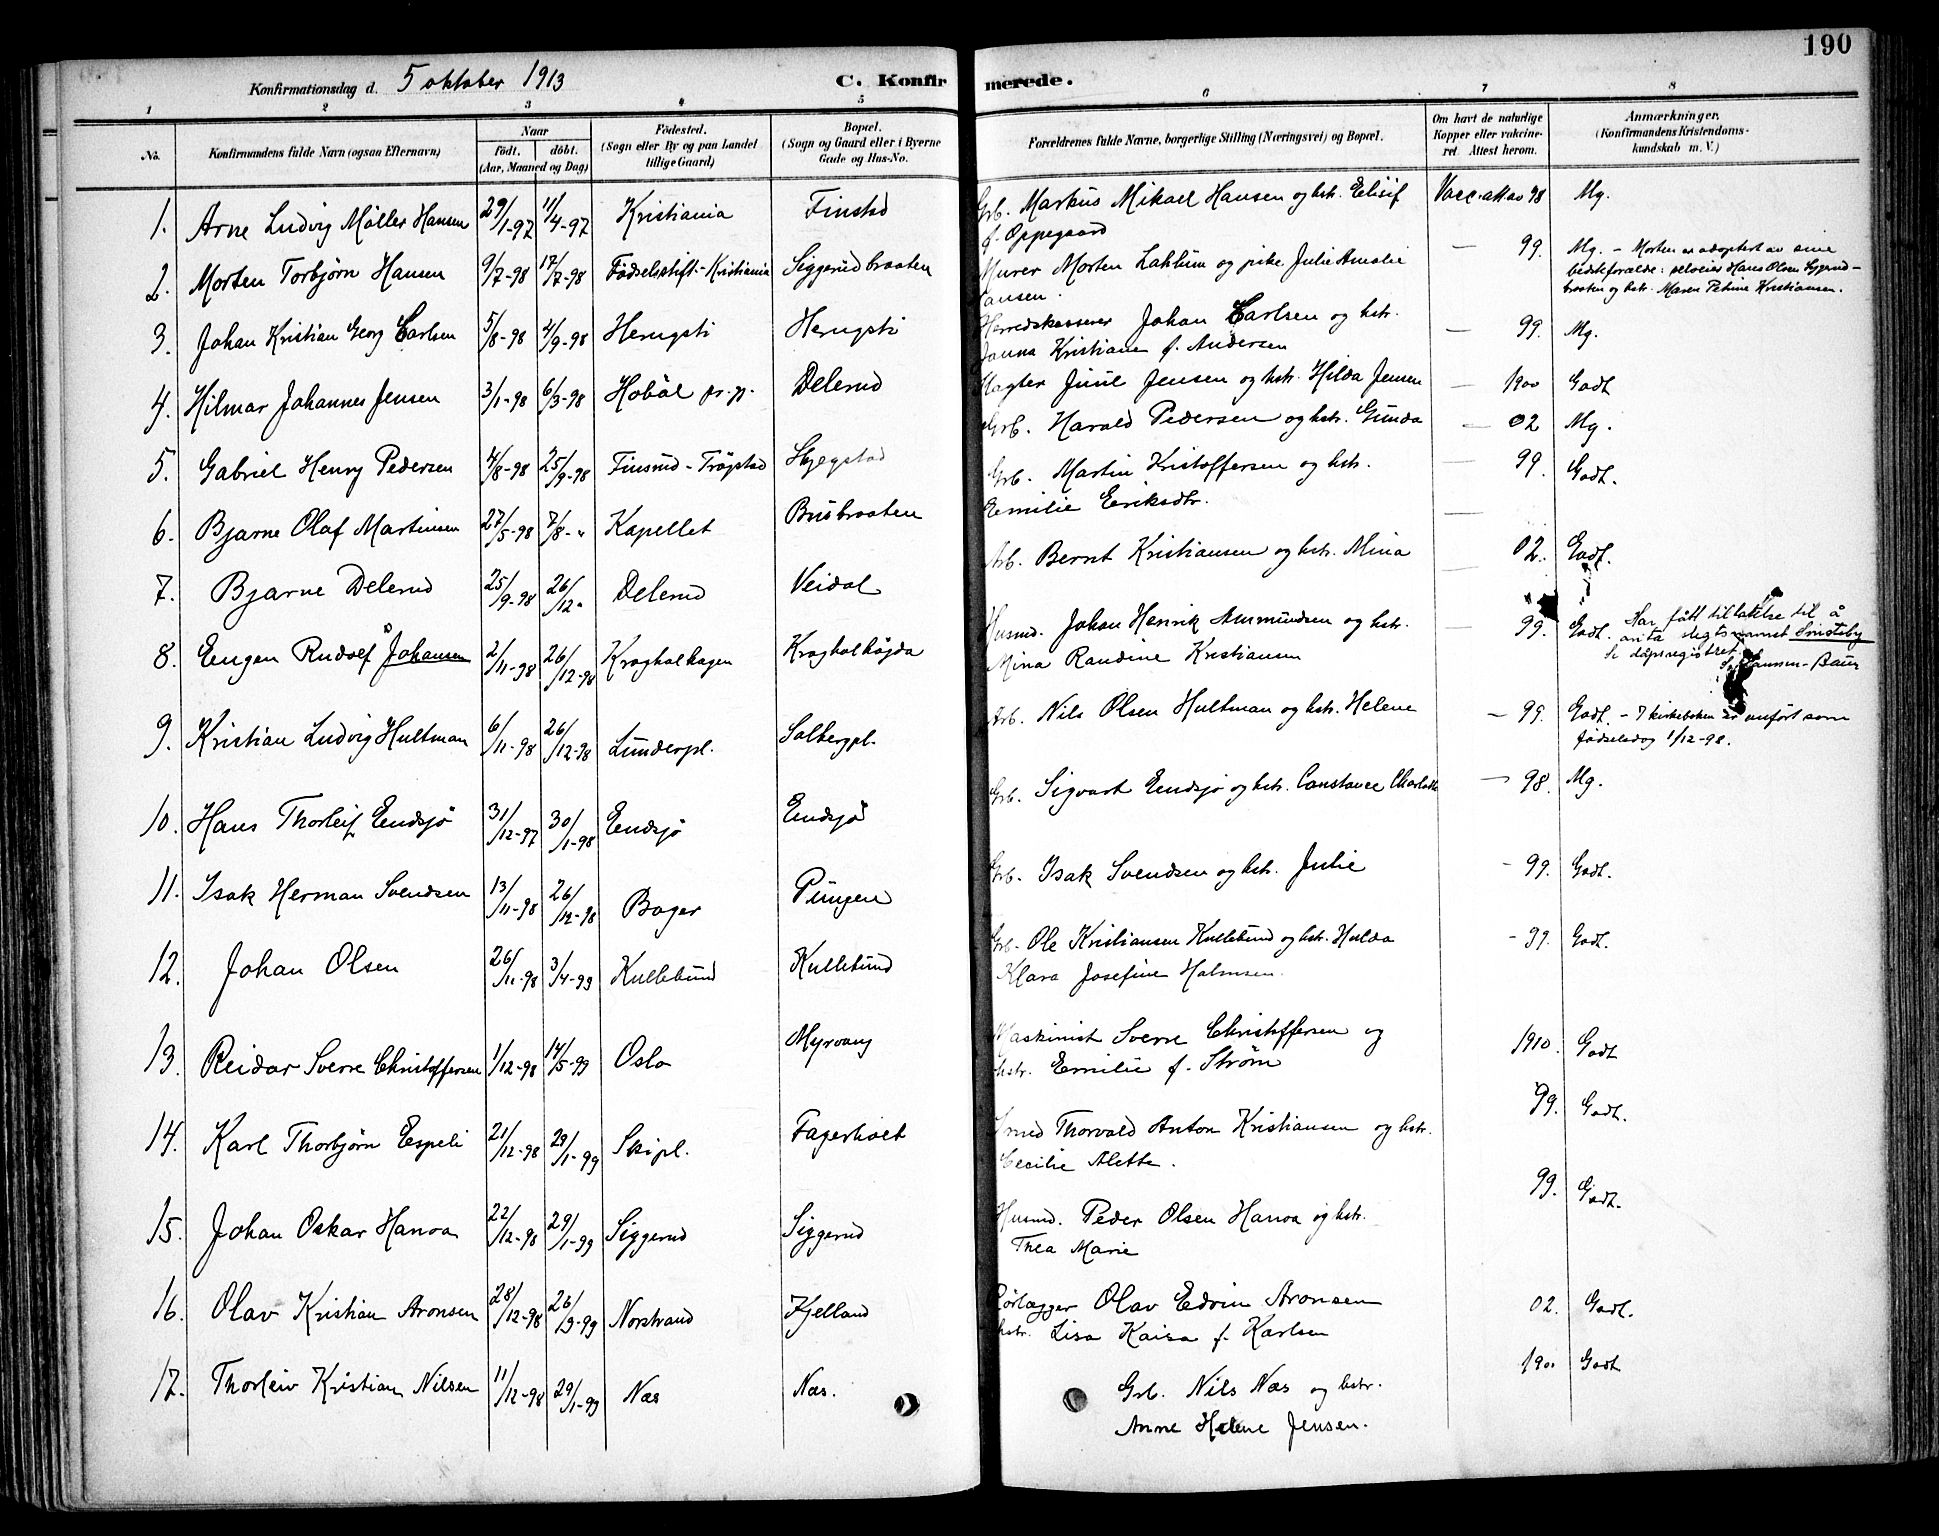 190
Konfirmationsdag d. 5 oktober 1913 C. Konfirmerede.
1 2 3 4 5 6 7 8
No. Konfirmandens fulde Navn (ogsaa Efternavn) Naar født. døbt. (Aar, Maaned og Dag) Fødested. (Sogn eller By og paa Landet tillige Gaard) Bopæl. (Sogn og Gaard eller i Byerne Gade og Hus-No. Forældrenes fulde Navne, borgerlige Stilling (Næringsvei) og Bopæl. Om havt de naturlige Kopper eller vakcineret Attest herom. Anmærkninger. (Konfirmandens Kristendomskundskab m. V.)
1. Arne Ludvig Møller Hansen 29/1-97 11/4-97 Kristiania Finstad Grb. Markus Mikael Hansen og hstr. Elisif Vacc. att av 98 Mg.
f. Oppegaard
2. Morten Torbjørn Hansen 9/7-98 17/7-98 Fødselsstift.-Kristiania Siggerudbraaten Murer Morten Lakkim og pike Julie Amalie — 99. Mg. - Morten er adoptert av sine
Hansen. bedsteforældre: selveier Hans Olsen Sygerud-
braaten og hstr. Maren Petrine Kristiansen.
3. Johan Kristian Georg Carlsen 5/8-98 4/9-98 Herugsti Herugsti Herredskasserer Johan Carlsen og hstr. — 99. Mg.
Janna Kristiane f. Andersen
4. Hilmar Johannes Jensen 3/1-98 6/3-98 Hobøl pr.gj. Delerud Slagter Juul Jensen og hstr. Hilda Jensen — 1900 Godt
5. Gabriel Henry Pedersen 4/8-98 25/9-98 Finsrud-Trøgstad Skjegstad Grb. Harald Pedersen og hstr. Gunda — 02 Mg.
6. Bjarne Olaf Martinsen 27/5-98 7/8-" Kapellet Busbraaten Grb. Martin Kristoffersen og hstr. — 99. Godt.
Emilie Eriksdtr.
7. Bjarne Delerud 25/9-98 26/12" Delerud Veidal Arb. Bernt Kristiansen og hstr. Mina — 02. Godt.
8. Eugen Rudolf Johansen 2/11-98 26/12-98 Kragholhagen Kragholhøgda Husmd. Johan Henrik Amundsen og hstr. — 99. Godt. Har fått tillatelse til å
Mina Randine Kristiansen anta slegtsnavnet Smedsby
Se dåpsregistret
9. Kristian Ludvig Hultman 6/11-98 26/12-98 Lunderpl. Solbergpl. Arb. Nils Olsen Hultman og hstr. Helene — 99. Godt. - I kirkeboken er anført som
fødselsdag 1/12-98.
10. Hans Thorleif Endsjø 31/12-97 30/1-98 Endsjø Endsjø Grb. Sigvart Endsjø og hstr. Constance Charlotte — 98. Mg.
11. Isak Herman Svendsen 13/11-98 26/12-98 Bager Pungen Grb. Isak Svendsen og hstr. Julie - 99. Godt.
12. Johan Olsen 26/11-98 3/4-99 Kullebund Kullebund Grb. Ole Kristiansen Kullebund og hstr. Hulda - 99. Godt.
Klara Josefine Holmsen.
13. Reidar Sverre Christoffersen 1/12-98 14/5-99 Oslo Myrvang Maskinist Sverre Christoffersen og 1910. Godt
hstr. Emilie f. Strøm
14. Karl Thorbjørn Espeli 21/12-98 29/1-99 Skipl. Fagerholt Smed Thorvald Anton Kristiansen og hstr. 99. Godt.
Cecilie Alette.
15. Johan Oskar Hanoa 22/12-98 29/1-99 Siggerud Siggerud Husmd. Peder Olsen Hanoa og hstr. 99. Godt.
Thea Marie
16. Olav Kristian Aronsen 28/12-98 26/9-99 Norstrand Kjelland Rørlægger Olav Edvin Aronsen 02. Godt.
hstr. Lisa Kaisa f. Karlsen
17. Thorleiv Kristian Nilsen 11/12-98 29/1-99 Næs Næs. Grb. Nils Næs og hstr. 1900 Godt
Anne Helene Jensen.